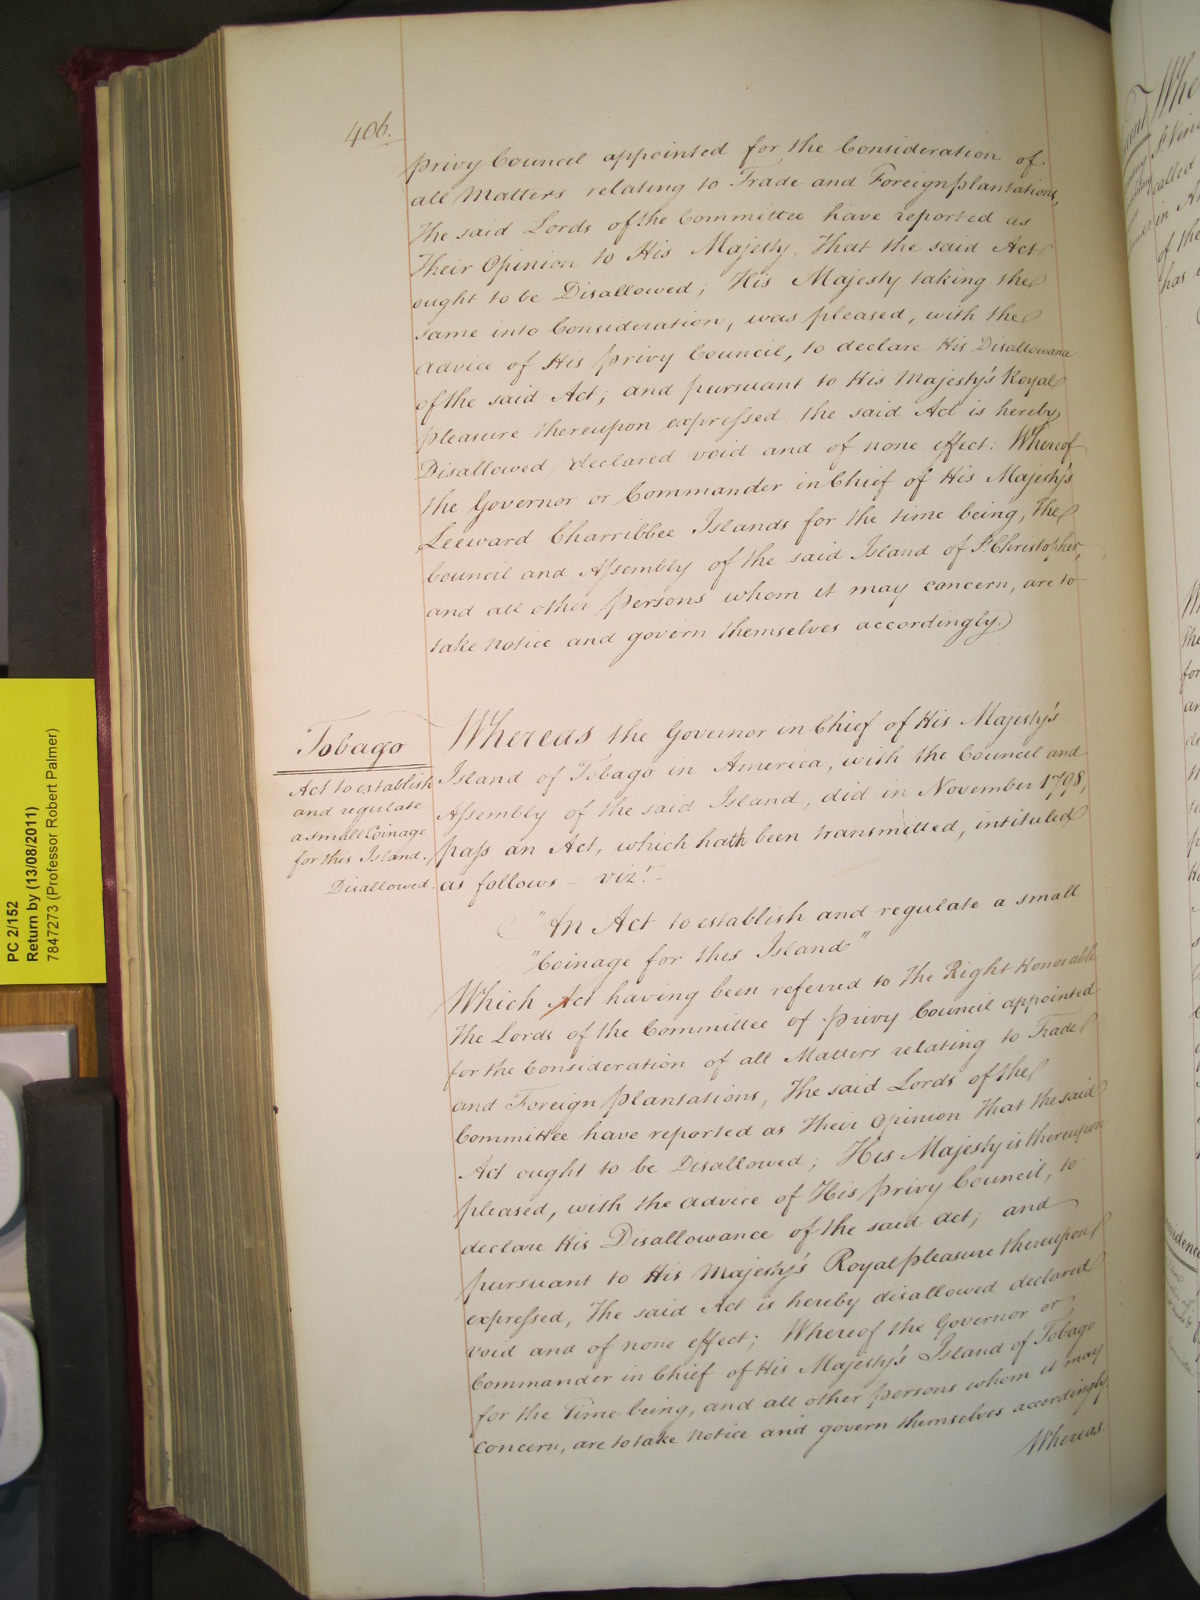 406.
privy Council appointed for the Consideration of
all Matters relating to Trade and Foreign plantations,
The said Lords of the Committee have reported as
Their Opinion to His Majesty, that the said Act
ought to be Disallowed; His Majesty taking the
same into Consideration, was pleased, with the
advice of His privy Council, to declare His Disallowance
of the said Act; and pursuant to His Majesty's Royal
pleasure thereupon expressed, the said Act is hereby
Disallowed, declared void and of none effect: Whereof
the Governor or Commander in Chief of His Majesty's
Leeward Charribbee Islands for the time being, The
Council and Assembly of the said Island of St. Christopher,
and all other persons whom it may concern, are to
take notice and govern themselves accordingly.
Tobago
Act to establish
and regulate
a small Coinage
for this Island.
Disallowed.
Whereas the Governor in Chief of His Majesty's
Island of Tobago in America, with the Council and
Assembly of the said Island, did in November 1798,
pass an Act, which hath been transmitted, intituled
as follows – vizt. –
"An Act to establish and regulate a small
"Coinage for this Island"
Which Act having been referred to The Right Honorable
the Lords of the Committee of privy Council appointed
for the Consideration of all Matters relating to Trade
and Foreign plantations, The said Lords of the
Committee have reported as Their Opinion That the said
Act ought to be Disallowed; His Majesty is thereupon
pleased, with the advice of His privy Council, to
declare His Disallowance of the said act; and
pursuant to His Majesty's Royal pleasure thereupon
expressed, The said Act is hereby disallowed declared
void and of none effect; Whereof the Governor or
Commander in Chief of His Majesty's Island of Tobago
for the Time being, and all other persons whom it may
concern, are to take notice and govern themselves accordingly.
Whereas
PC 2/152
Return by (13/08/2011)
7847273 (Professor Robert Palmer)